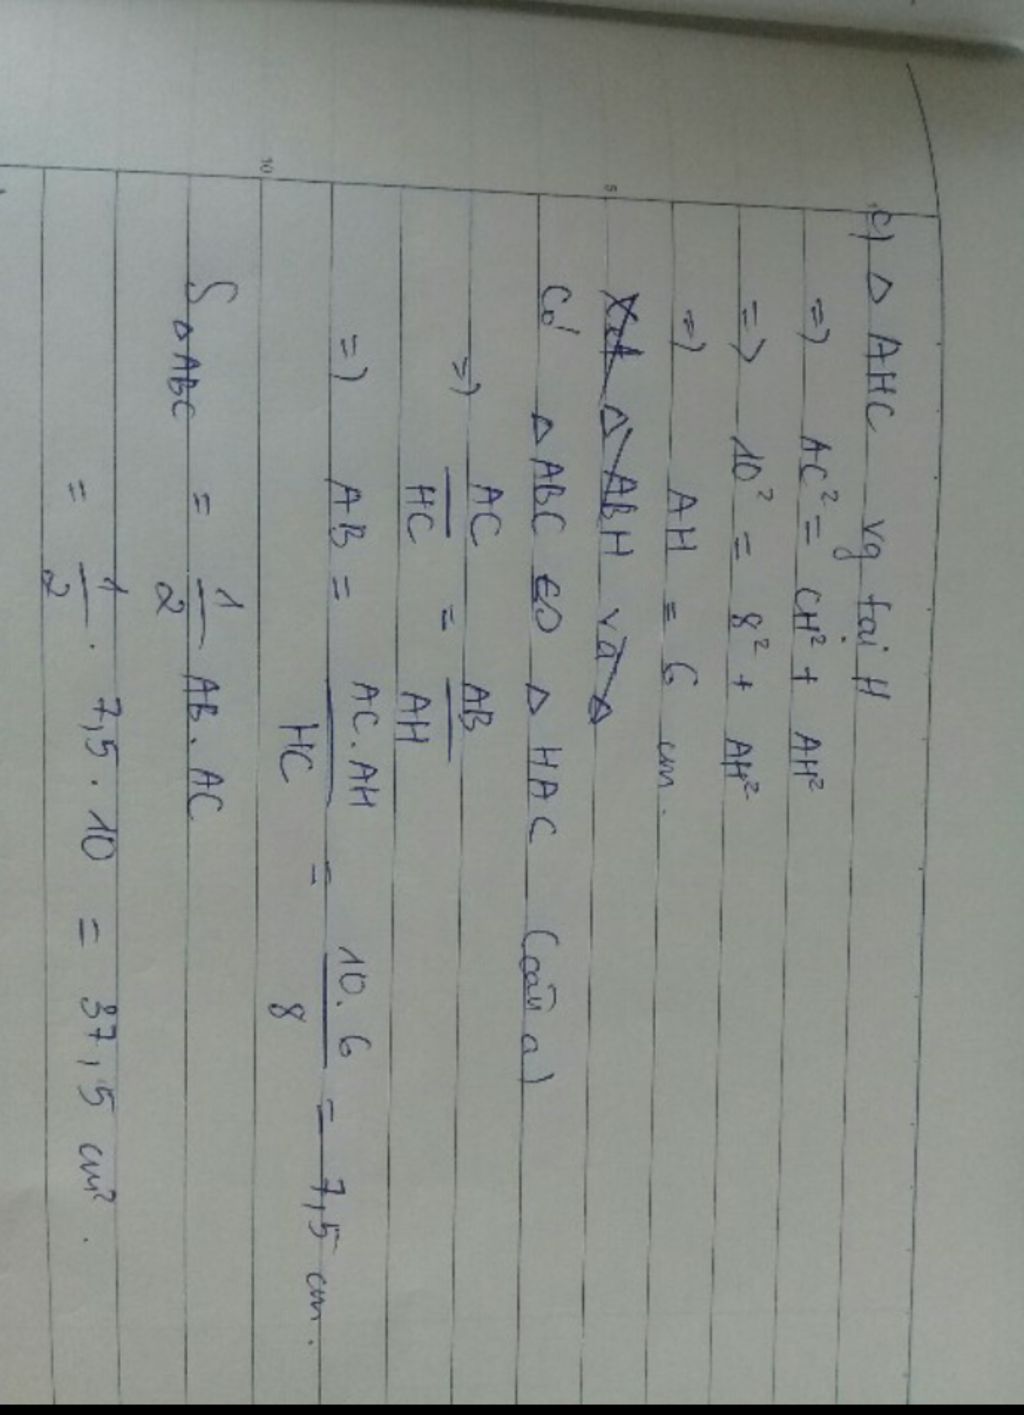 c) Δ AHC vg tại H
=) AC² = CH² + AH²
=) 10² = 8² + AH²
=) AH = 6 cm.
Xét Δ ABH và Δ
Có Δ ABC ∽ Δ HAC (câu a)
=) AC/HC = AB/AH
=) AB = AC.AH/HC = 10.6/8 = 7,5 cm.
S ΔABC = 1/2 AB.AC
= 1/2 . 7,5 . 10 = 37,5 cm².
5
10